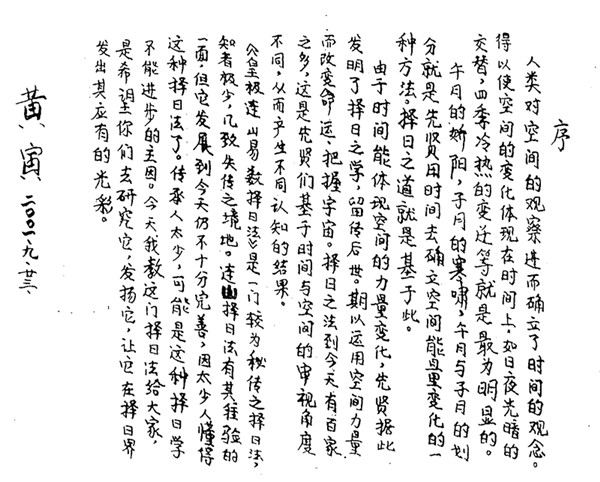 序
人类对空间的观察进而确立了时间的观念。
得以使空间的变化体现在时间上,如日夜光暗的
交替,四季冷热的变迁等就是最为明显的。
午月的娇阳,子月的寒啸,午月与子月的划
分就是先贤用时间去确立空间能量变化的一
种方法。择日之道就是基于此。
由于时间能体现空间的力量变化,先贤据此
发明了择日之学,留传后世。期以运用空间力量
而改变命运、把握宇宙。择日之法到今天有百家
之多,这是先贤们基于时间与空间的审视角度
不同,从而产生不同认知的结果。
《皇极连山易数择日法》是一门较为秘传之择日法,
知者极少,几致失传之境地。连山择日法有其经验的
一面,但它发展到今天仍不十分完善,因太少人懂得
这种择日法了。传承人太少,可能是这种择日学
不能进步的主因。今天,我教这门择日法给大家,
是希望你们去研究它,发扬它,让它在择日界
发出其应有的光彩。
黄寅 二〇〇一九、廿三